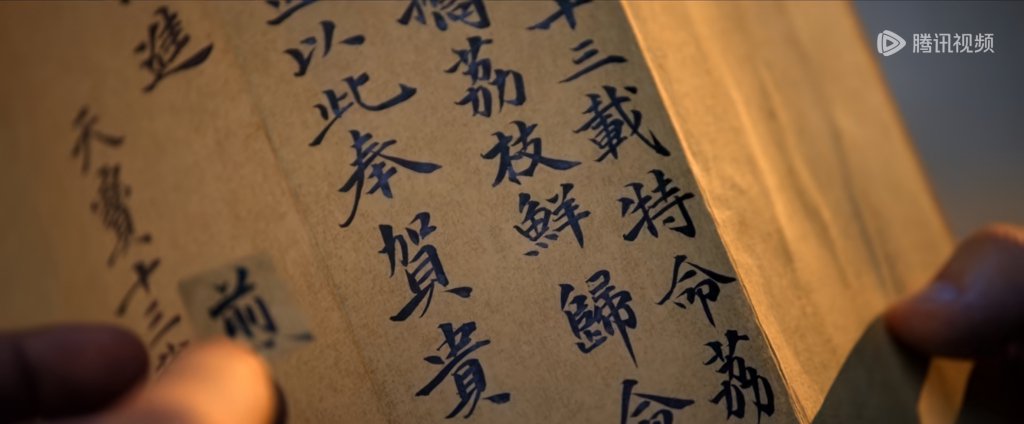 腾讯视频
十三載特命荔
荔枝鮮歸
以此奉賀貴
進
天寶十三
煎